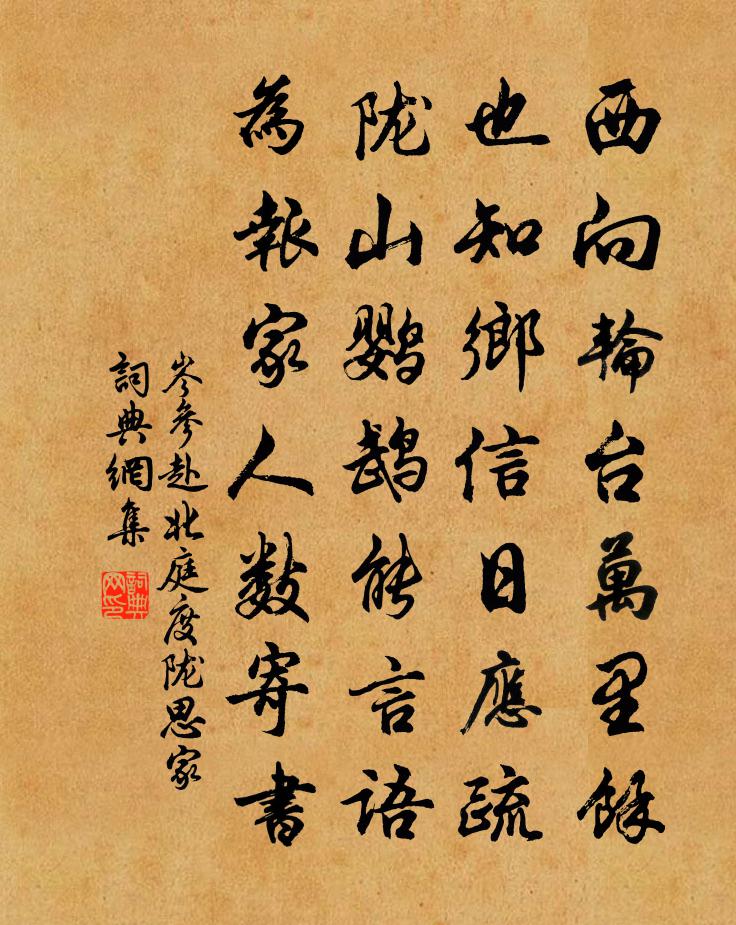 西向輪台萬里餘
也知鄉信日應疏
陇山鹦鹉能言語
為報家人数寄書
岑參赴北庭度陇思家
詞典網集
詞典网印